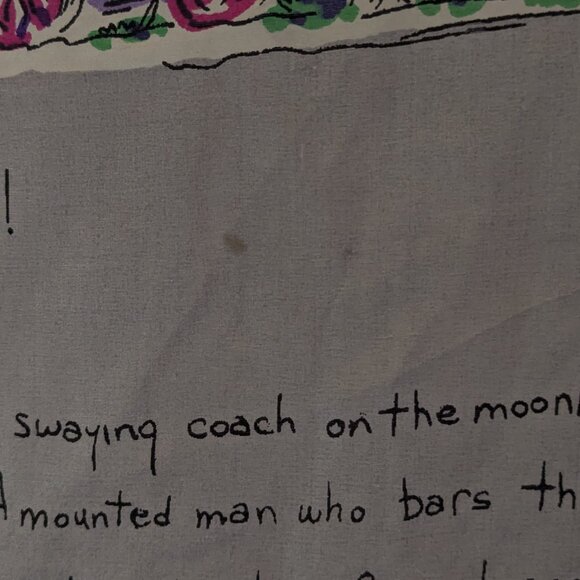 !
swaying coach on the moon
A mounted man who bars th